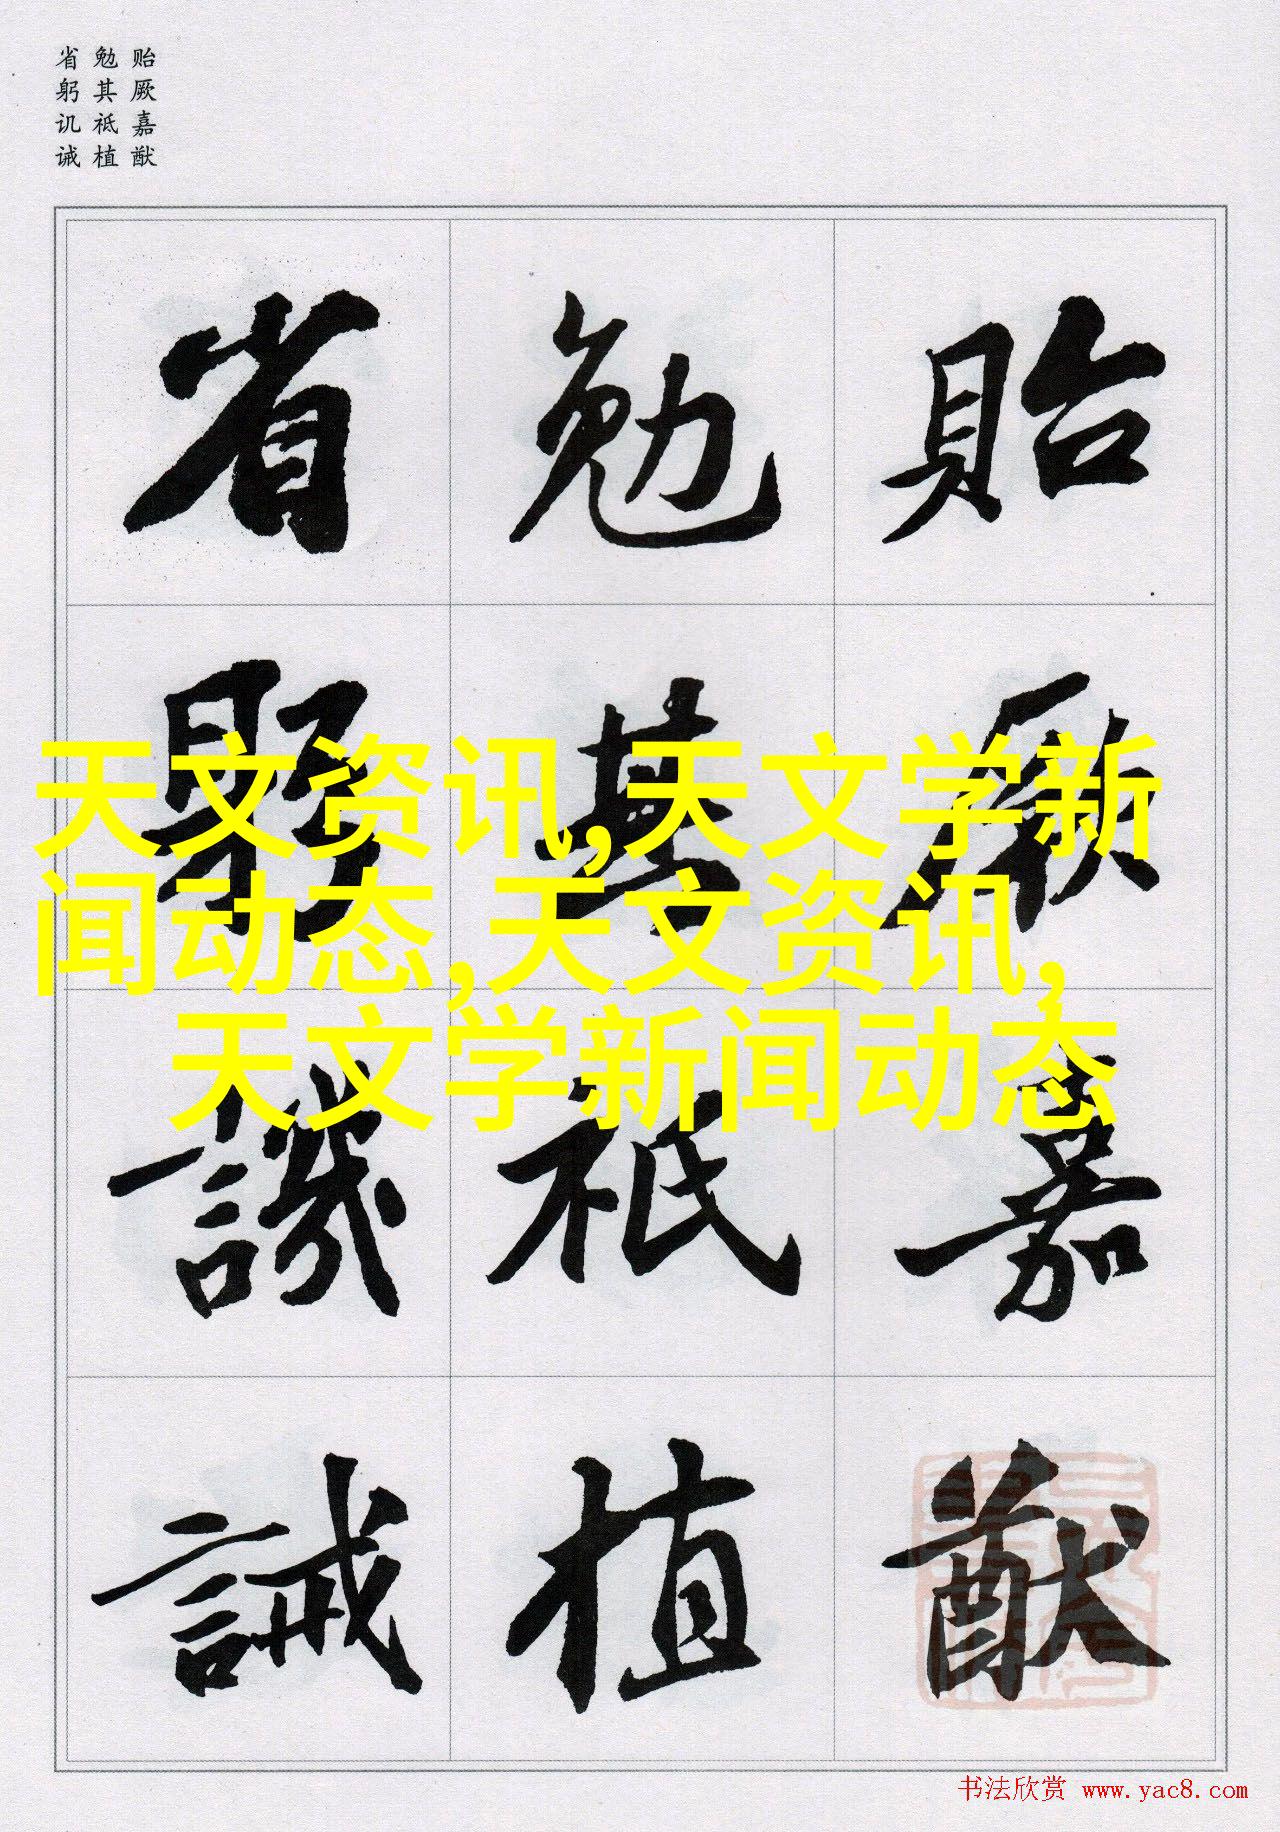 贻厥嘉猷
勉其祗植
省躬讥诫
貽厥嘉猷
勉其祗植
省躬譏誡
天文资讯,天文学新
闻动态,天文资讯,
天文学新闻动态
书法欣赏 www.yac8.com